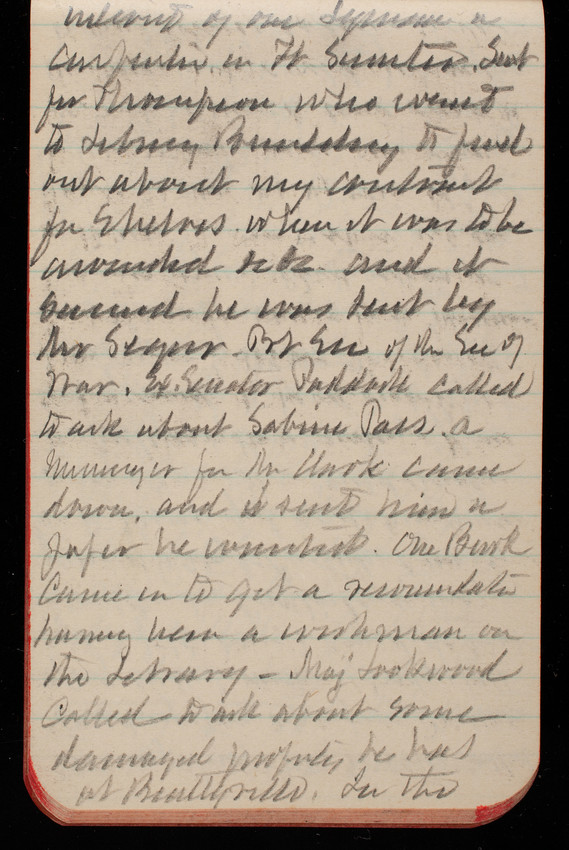 of one Seymour a
carpenter, in Ft Sumter. Sent
for Thompson who went
to Library Building to find
out about my contract
for Shelves. when it was to be
awarded &c &c. and it
seemed he was sent by
Mr Pvt Sec of the Sec of
War. Ex. Senator Paddock called
to ask about Sabine Pass. a
messenger for Mr Clark came
down, and I sent him a
paper he wanted. One Burk
Came in to get a
having been a workman on
the Library - Maj Lockwood
Called to ask about some
damaged property he had
at Beattyville. In the